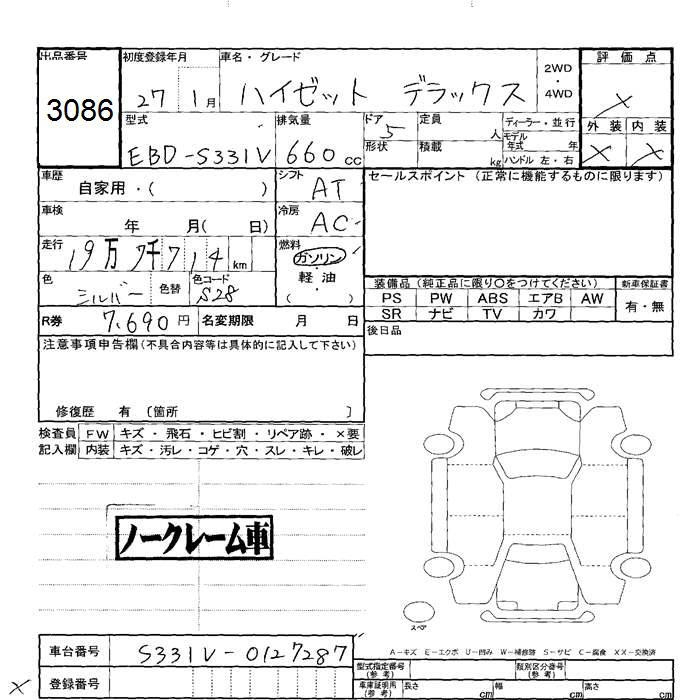 出品番号
3086
初度登録年月
27 1月
車名・グレード
ハイゼット デラックス
2WD
・
4WD
評価点
×
外装 内装
× ×
型式
EBD-S331V
排気量
660 cc
ドア
5
形状
定員
人
積載
kg
ディーラー・並行
モデル
年式 年
ハンドル 左・右
車歴
自家用・( )
シフト
AT
車検
年 月( 日)
冷房
AC
走行
19万 7千 7 1 4 km
燃料
ガソリン
・
軽油
・
( )
色
シルバー
色替
色コード
S28
R券 7.690円
名変期限 月 日
セールスポイント(正常に機能するものに限ります)
装備品(純正品に限り○をつけてください)
新車保証書
PS PW ABS エアB AW
SR ナビ TV カワ
有・無
後日品
注意事項申告欄(不具合内容等は具体的に記入して下さい)
修復歴 有 〔箇所 〕
検査員 FW キズ・飛石・ヒビ割・リペア跡・×要
記入欄 内装 キズ・汚レ・コゲ・穴・スレ・キレ・破レ
ノークレーム車
スペア
A-キズ E-エクボ U-凹み W-補修跡 S-サビ C-腐食 XX-交換済
車台番号 S331V-0127287
× 登録番号
型式指定番号
(参考)
類別区分番号
(参考)
車庫証明用
(参考)
長さ cm 幅 cm 高さ cm